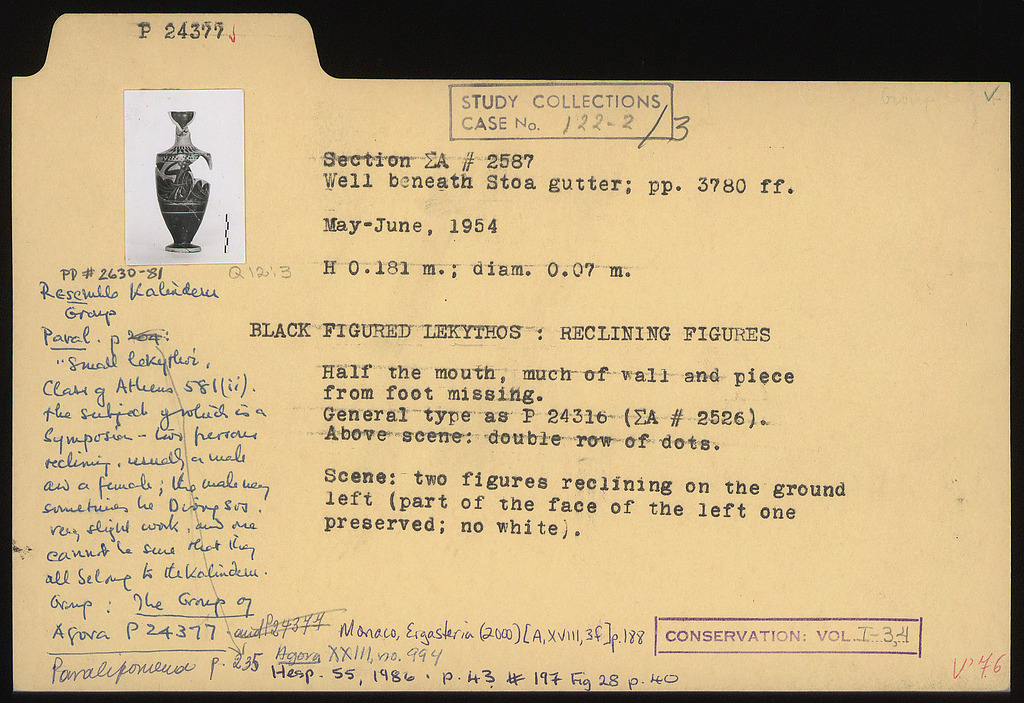 P 24377
STUDY COLLECTIONS
CASE No. 122-2/3
Section ΣA # 2587
Well beneath Stoa gutter; pp. 3780 ff.
May-June, 1954
H 0.181 m.; diam. 0.07 m.
BLACK FIGURED LEKYTHOS : RECLINING FIGURES
Half the mouth, much of wall and piece
from foot missing.
General type as P 24316 (ΣA # 2526).
Above scene: double row of dots.
Scene: two figures reclining on the ground
left (part of the face of the left one
preserved; no white).
PD # 2630-81
Q 12:3
Resembles Kalinderu
Group
Paral. p 204:
"Small lekythoi,
Class of Athens 581 (ii).
the subject of which is a
Symposion - two persons
reclining, usually a male
and a female; the male may
sometimes be Dionysos.
very slight work, and one
cannot be sure that they
all belong to the Kalinderu
Group: The Group of
Agora P 24377 and P 24377
Paralipomena p. 235
Monaco, Ergasteria (2000) [A, XVIII, 3f] p. 188
Agora XXIII, no. 994
Hesp. 55, 1986. p. 43 # 197 Fig 28 p. 40
CONSERVATION: VOL. I-3,4
V'76